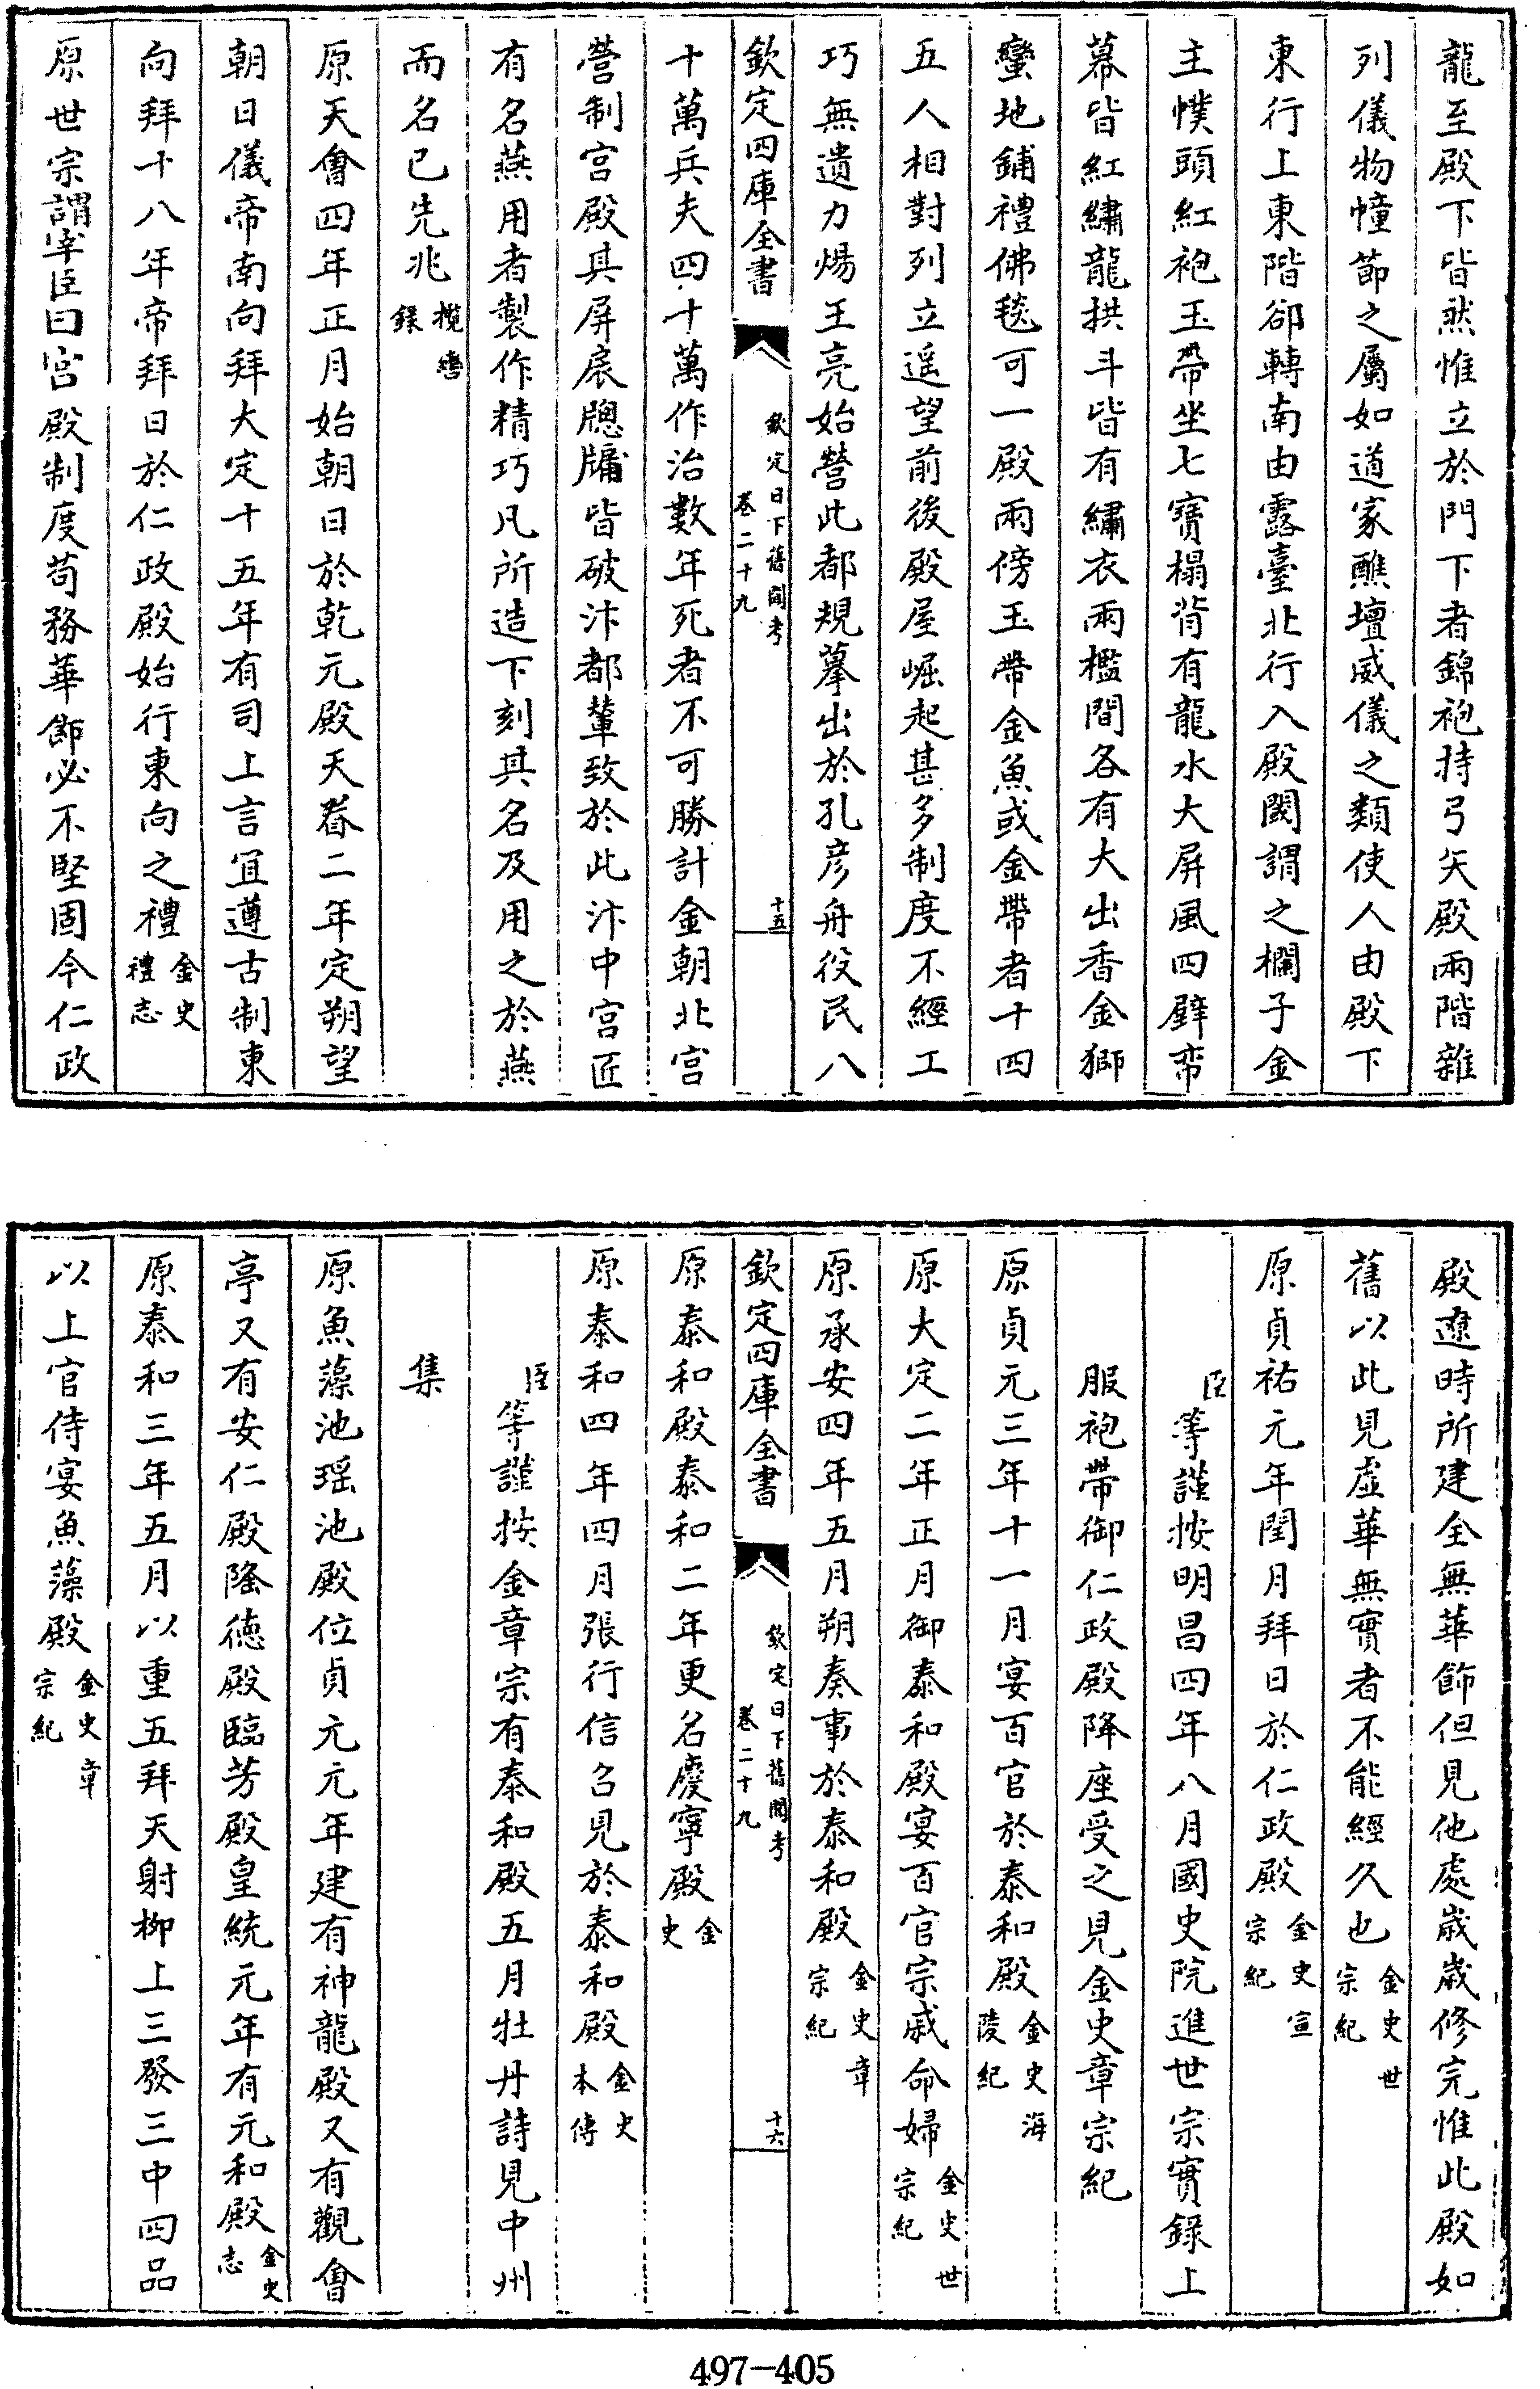 龍至殿下皆然惟立於門下者錦袍持弓矢殿兩階雜
列儀物幢節之屬如道家醮壇威儀之類使人由殿下
東行上東階郤轉南由露臺北行入殿闕謂之欄子金
主幞頭紅袍玉帶坐七寶榻背有龍水大屏風四壁帟
幕皆紅繡龍拱斗皆有繡衣兩檻間各有大出香金獅
蠻地鋪禮佛毯可一殿兩傍玉帶金魚或金帶者十四
五人相對列立遥望前後殿屋崛起甚多制度不經工
巧無遺力煬王亮始營此都規摹出於孔彦舟役民八
欽定四庫全書
欽定日下舊聞考
卷二十九
十五
十萬兵夫四十萬作治數年死者不可勝計金朝北宫
營制宫殿其屏扆牕牖皆破汴都輦致於此汴中宫匠
有名燕用者製作精巧凡所造下刻其名及用之於燕
而名已先兆攬轡録
原天會四年正月始朝日於乾元殿天眷二年定朔望
朝日儀帝南向拜大定十五年有司上言宜遵古制東
向拜十八年帝拜日於仁政殿始行東向之禮金史禮志
原世宗謂宰臣曰宫殿制度苟務華飾必不堅固今仁政
殿遼時所建全無華飾但見他處歲歲修完惟此殿如
舊以此見虛華無實者不能經久也金史世宗紀
原貞祐元年閏月拜日於仁政殿金史宣宗紀
臣等謹按明昌四年八月國史院進世宗實録上
服袍帶御仁政殿降座受之見金史章宗紀
原貞元三年十一月宴百官於泰和殿金史海陵紀
原大定二年正月御泰和殿宴百官宗戚命婦金史世宗紀
原承安四年五月朔奏事於泰和殿金史章宗紀
欽定四庫全書
欽定日下舊聞考
卷二十九
十六
原泰和殿泰和二年更名慶寧殿金史
原泰和四年四月張行信召見於泰和殿金史本傳
臣等謹按金章宗有泰和殿五月牡丹詩見中州
集
原魚藻池瑶池殿位貞元元年建有神龍殿又有觀會
亭又有安仁殿隆德殿臨芳殿皇統元年有元和殿金史志
原泰和三年五月以重五拜天射柳上三發三中四品
以上官侍宴魚藻殿金史章宗紀
497-405